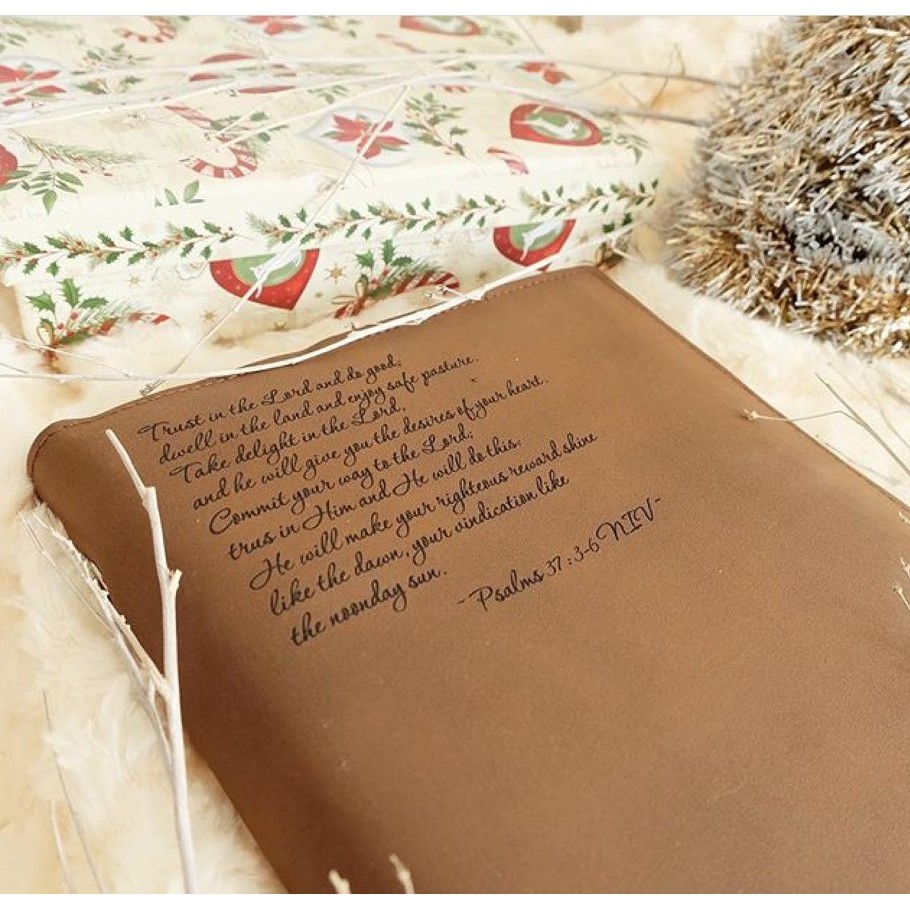 Trust in the Lord and do good;
dwell in the land and enjoy safe pasture.
Take delight in the Lord,
and he will give you the desires of your heart.
Commit your way to the Lord;
trus in Him and He will do this;
He will make your righteous reward shine
like the dawn, your vindication like
the noonday sun.
~ Psalms 37:3-6 NIV~